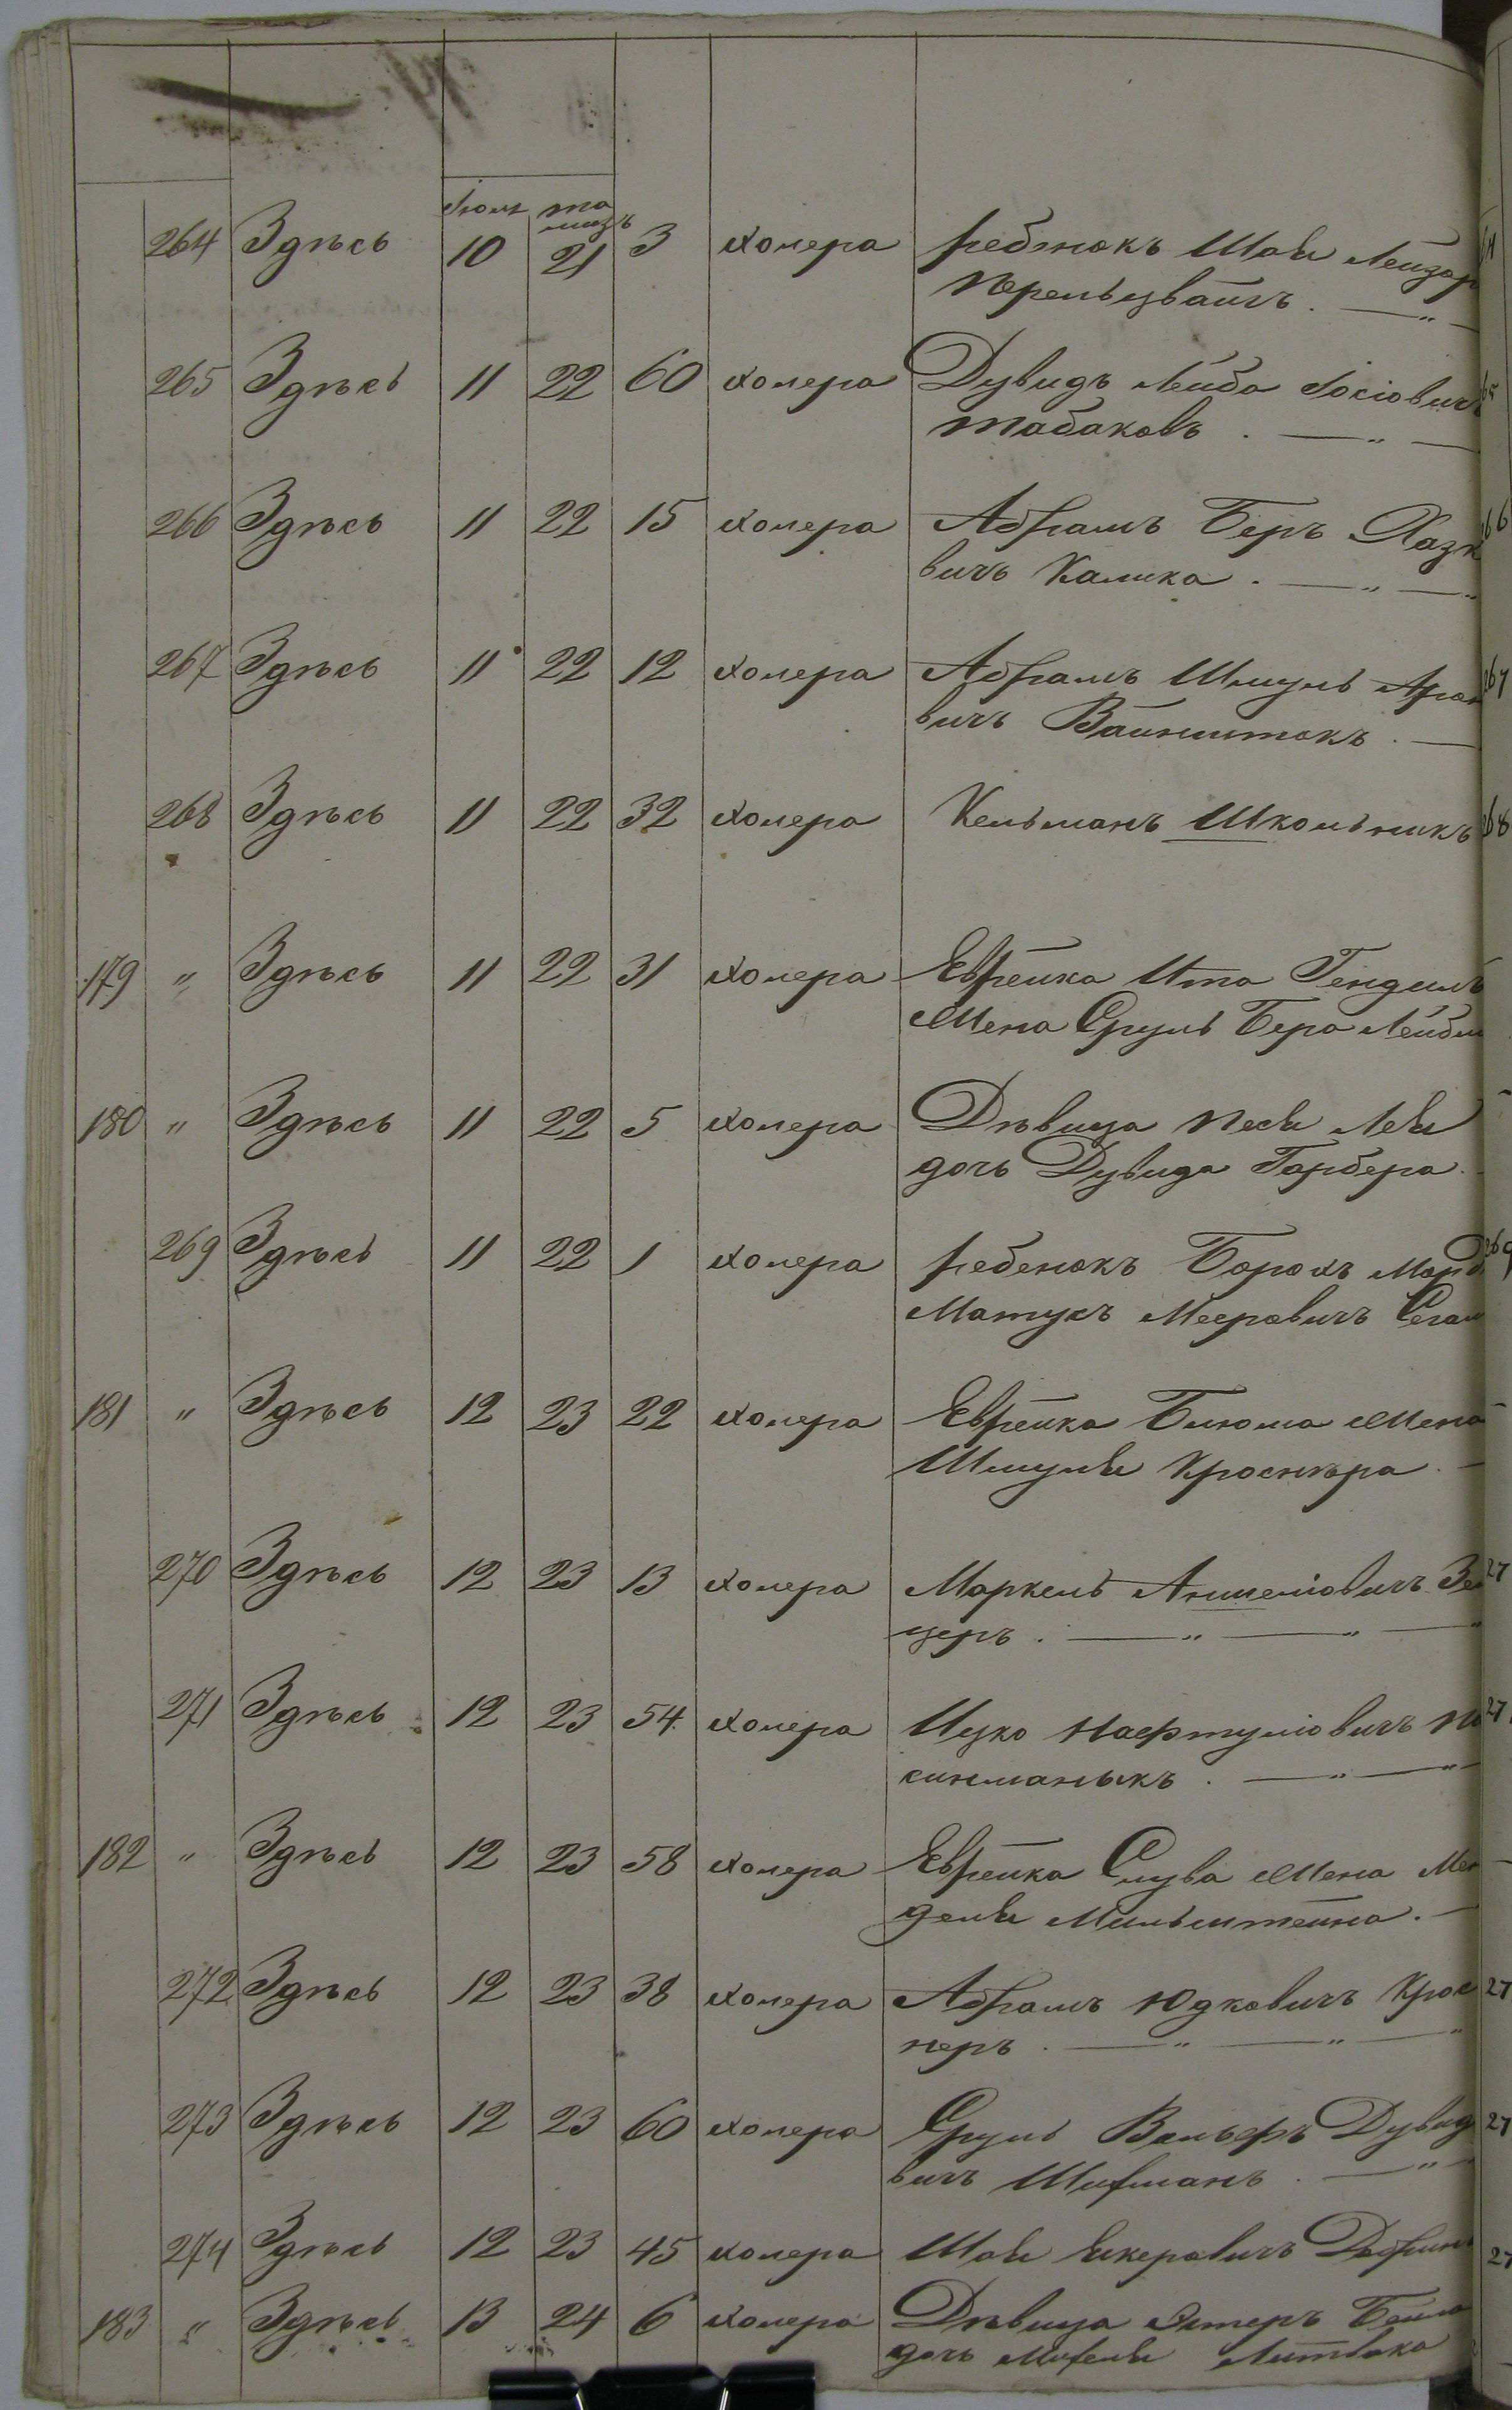 Іюля та
мизъ
264 Здѣсь 10 21 3 холера ребенокъ Шая Лейзор
Перельцвайгъ . — " —
265 Здѣсь 11 22 60 холера Дувидъ Лейба Іосіовичъ
Табаковъ . — " —
266 Здѣсь 11 22 15 холера Абрамъ Беръ Хазк
вичъ Калика . — " — "
267 Здѣсь 11 22 12 холера Абрамъ Шмуль Аро
вичъ Вайнштокъ . —
268 Здѣсь 11 22 32 холера Кельманъ Школьникъ
179 " Здѣсь 11 22 31 холера Еврейка Ита Гендель
жена Сруль Бера Лейб
180 " Здѣсь 11 22 5 холера Дѣвица Песя Лея
дочь Дувида Гарбера .
269 Здѣсь 11 22 1 холера ребенокъ Борохъ Морд
Матусъ Мееровичъ Сегал
181 " Здѣсь 12 23 22 холера Еврейка Блюма жена
Шмуля Кроснера . —
270 Здѣсь 12 23 13 холера Маркель Аншеліовичъ Зе
церъ . — " — " — "
271 Здѣсь 12 23 54 холера Ицко Нафтуліовичъ По
синманыкъ . — " — "
182 " Здѣсь 12 23 58 холера Еврейка Слува жена Мен
деля Мильштейна . —
272 Здѣсь 12 23 38 холера Абрамъ Юдковичъ Крос
неръ . — " — " — "
273 Здѣсь 12 23 60 холера Сруль Вольфъ Дувид
вичъ Шифманъ . — " —
274 Здѣсь 12 23 45 холера Шая Янкеровичъ
183 " Здѣсь 13 24 6 холера Дѣвица Эстеръ Бейла
дочь Михеля Литвака